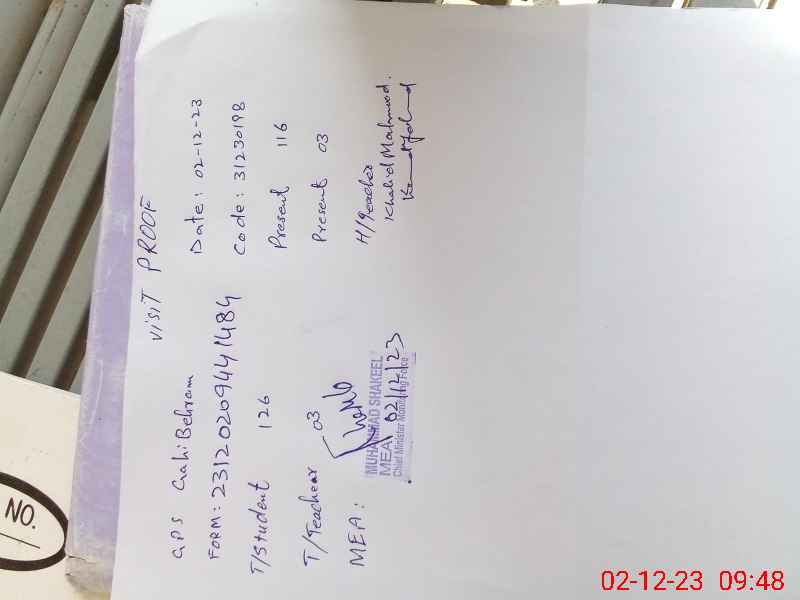 VISIT PROOF
GPS Grahi Behram Date: 02-12-23
FORM: 231202094441484 Code: 31230198
T/Student 126 Present 116
T/Teacher 03 Present 03
MEA: H/Teacher
Khalid Mahmood.
MUHAMMAD SHAKEEL
MEA 02/12/23
Chief Minister Monitoring Force
NO.
02-12-23 09:48